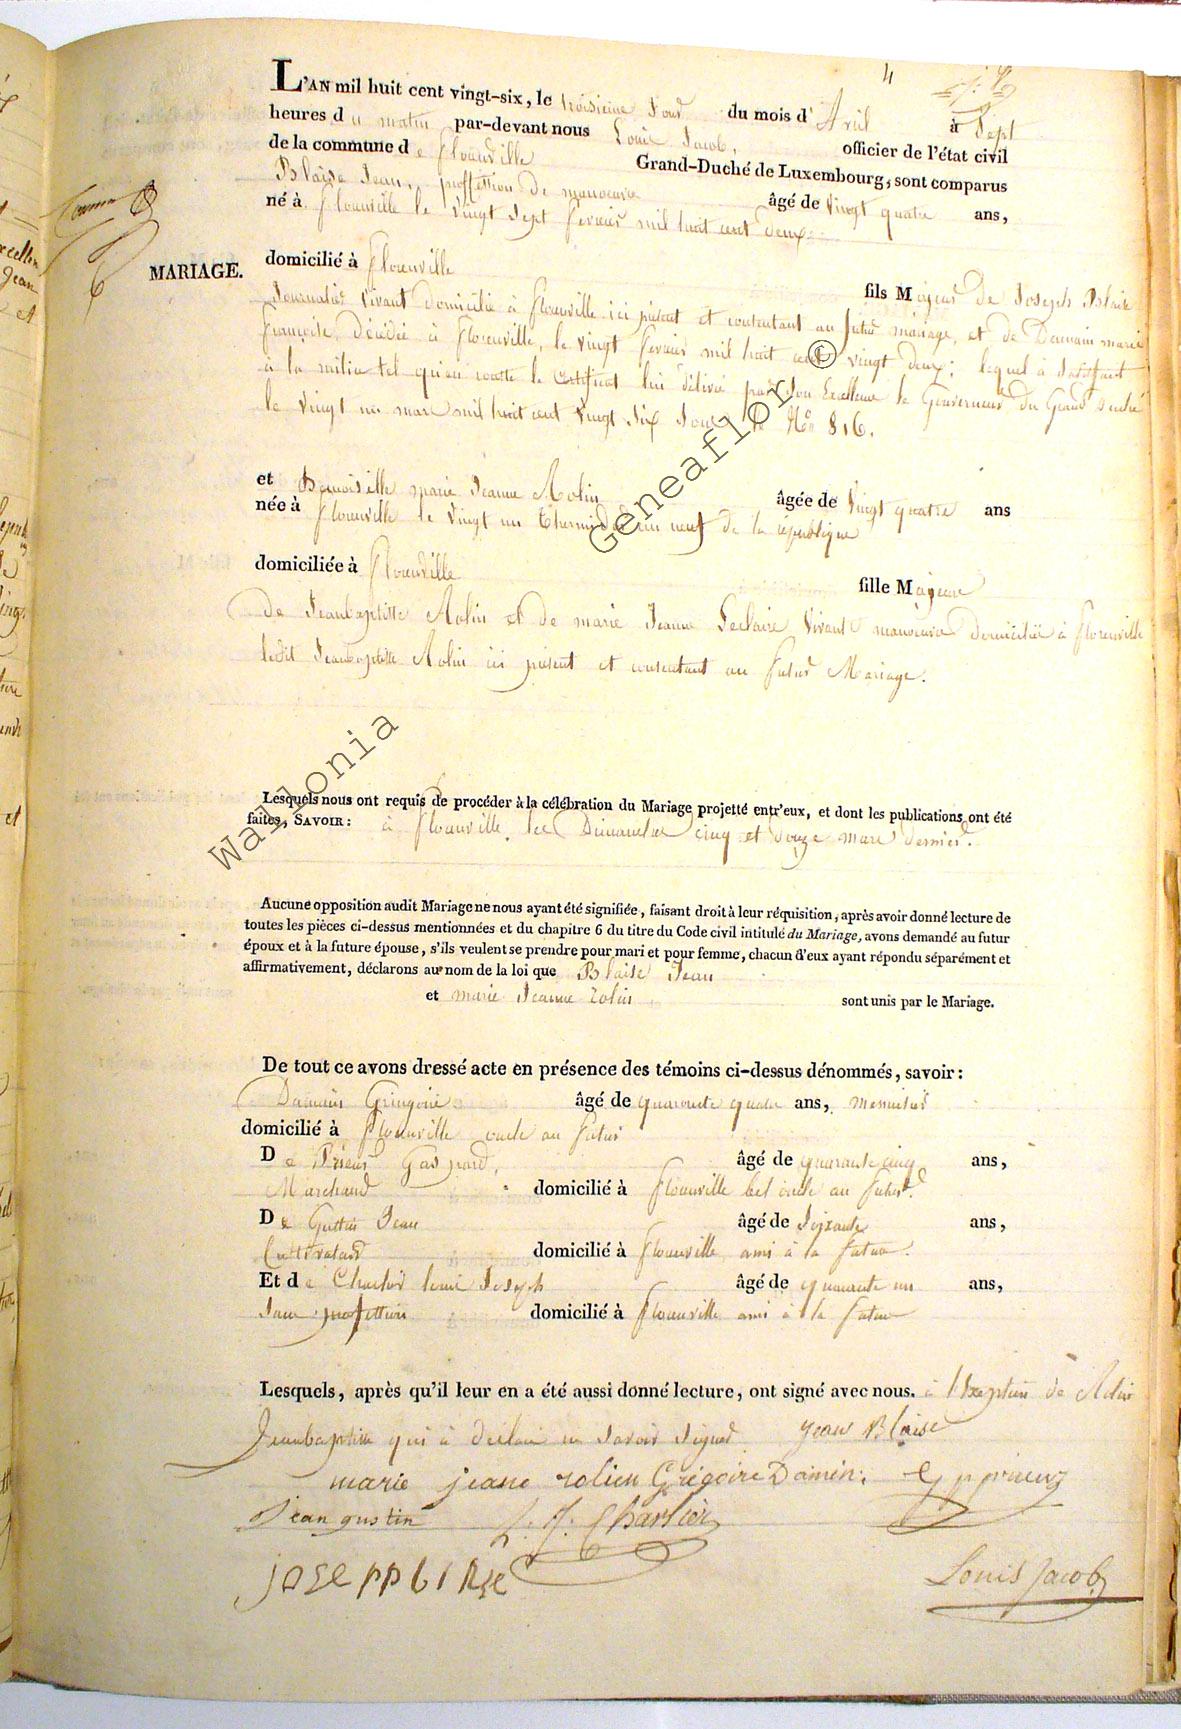 4
L'AN mil huit cent vingt-six, le troisieme Jour du mois d'Avril à Sept
heures du matin par-devant nous Louis Jacob, officier de l'état civil
de la commune de florenville Grand-Duché de Luxembourg, sont comparus
Blaise Jean, proffession de manoeuvre âgé de Vingt quatre ans,
né à florenville le Vingt Sept fevrier mil huit cent deux
MARIAGE.
domicilié à florenville fils Majeur de Joseph Blaise
Journalier Vivant domicilié à florenville ici présent et consentant au futur mariage, et de Damain marie
françoise, Décédée à florenville, le vingt fevrier mil huit cent vingt deux; lequel à Satisfait
à la milice tel qu'en conste le Certificat lui délivré par Son Excellence le Gouverneur du Grand duché
le Vingt un mars mil huit cent vingt Six Sous le No 816.
et Demoiselle marie Jeanne Rolin âgée de Vingt quatre ans
née à florenville le Vingt un Thermidor an neuf de la république
domiciliée à florenville fille Majeure
de Jeanbaptiste Rolin et de marie Jeanne Leclaire Vivant manoeuvre domiciliés à florenville
ledit Jeanbaptiste Rolin ici présent et consentant au futur Mariage.
Lesquels nous ont requis de procéder à la célébration du Mariage projetté entr'eux, et dont les publications ont été
faites, SAVOIR: à florenville les Dimanches cinq et douze mars dernier.
Aucune opposition audit Mariage ne nous ayant été signifiée, faisant droit à leur réquisition, après avoir donné lecture de
toutes les pièces ci-dessus mentionnées et du chapitre 6 du titre du Code civil intitulé du Mariage, avons demandé au futur
époux et à la future épouse, s'ils veulent se prendre pour mari et pour femme, chacun d'eux ayant répondu séparément et
affirmativement, déclarons au nom de la loi que Blaise Jean
et marie Jeanne rolin sont unis par le Mariage.
De tout ce avons dressé acte en présence des témoins ci-dessus dénommés, savoir:
Damain Gringoire âgé de quarante quatre ans, menuisier
domicilié à florenville oncle au futur
De Prieur Gaspard, âgé de quarante cinq ans,
Marchand domicilié à florenville bel oncle au futur.
De Gustin Jean âgé de Soixante ans,
Cultivateur domicilié à florenville ami à la future.
Et de Charlier louis Joseph âgé de quarante un ans,
Sans proffession domicilié à florenville ami à la future
Lesquels, après qu'il leur en a été aussi donné lecture, ont signé avec nous. à l'Exeption de Rolin
Jeanbaptiste qui à déclaré ne Savoir Signer Jean Blaise
marie jeane rolien Grégoire Damin. G p prieur
Jean gustin L. J. Charlier
joseppblRse Louis Jacob
Wallonia Geneaflor ©